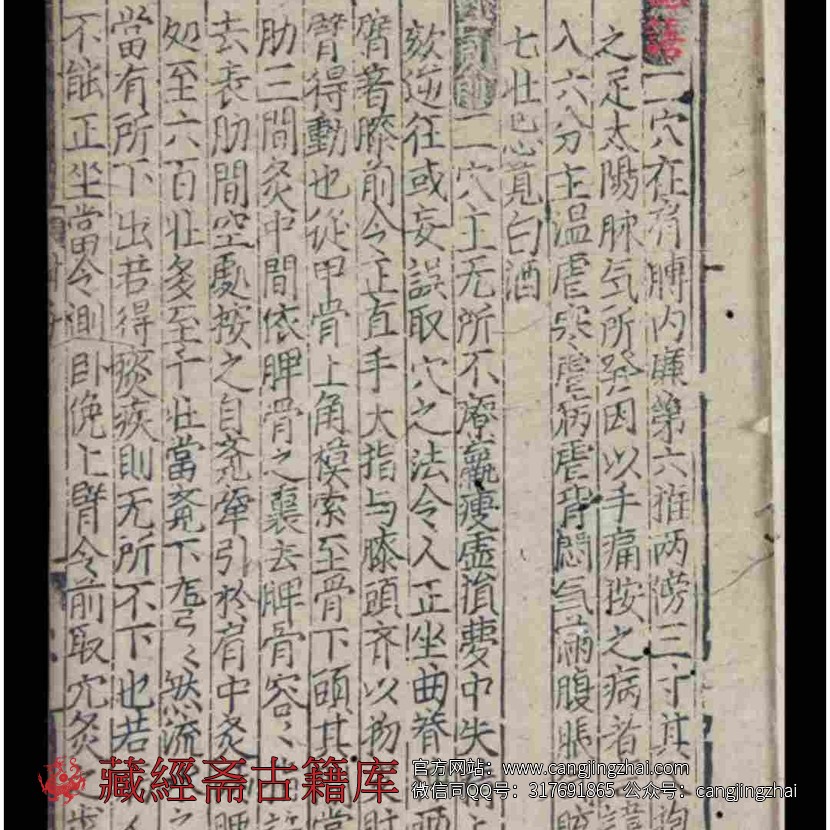 二穴在肩膊内廉第六椎两傍三寸其
之足太陽脉气所發因以手痛按之病者
入六分主温瘧寒瘧病瘧背悶气滿腹脹
七壮忌莧白酒
俞二穴主无所不療羸瘦虚損夢中失
欬逆徃或妄誤取穴之法令人正坐曲脊
臂著膝前令正直手大指与膝頭齐以物
臂得動也從甲骨上角模索至骨下頭其
肋三間灸中間依胛骨之裏去胛骨容〻
去表肋間空處按之自覺牽引於肩中灸
処至六百壮多至千壮當覺下〻然流
當有所下出若得痰疾則无所不下也若
不能正坐當令側卧俛上臂令前取穴灸
藏經斋古籍库
官方网站：www.cangjingzhai.com
微信同QQ号：317691865 公众号：cangjingzhai